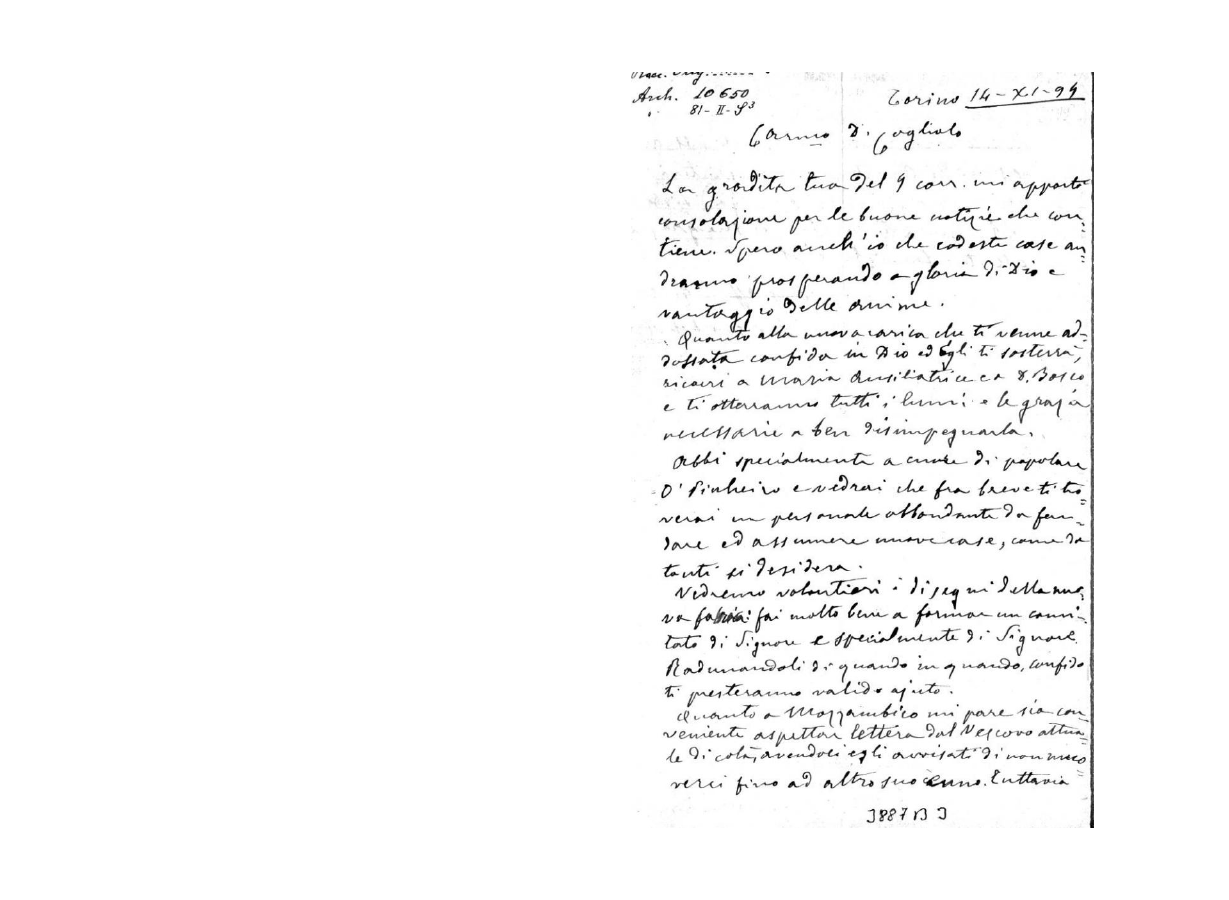 Arch. 10650
81-II-S3
Torino 14-XI-94
Carmo D. Cogliolo
La gradita tua del 9 corr. mi apportò
consolazione per le buone notizie che con-
tiene. Spero anch'io che codeste case an-
dranno prosperando a gloria di Dio e
vantaggio delle anime.
Quanto alla nuova carica che ti venne ad-
dossata confida in Dio ed Egli ti sosterrà,
ricorri a Maria Ausiliatrice e a D. Bosco
e ti otterranno tutti i lumi e le grazie
necessarie a ben disimpegnarla.
Abbi specialmente a cuore di popolare
O' Pinheiro e vedrai che fra breve ti tro-
verai un personale abbondante da fon-
dare ed assumere nuove case, come da
tanti si desidera.
Vedremo volontieri i disegni della nuo-
va fabbrica: fai molto bene a formar un comi-
tato di Signore e specialmente di Signore.
Radunandoli di quando in quando, confido
ti presteranno valido ajuto.
Quanto a Mozzambico mi pare sia con-
veniente aspettar lettera dal Vescovo attua-
le di colà, avendoci egli avvisati di non muo
verci fino ad altro suo cenno. Tuttavia
3887 B 3